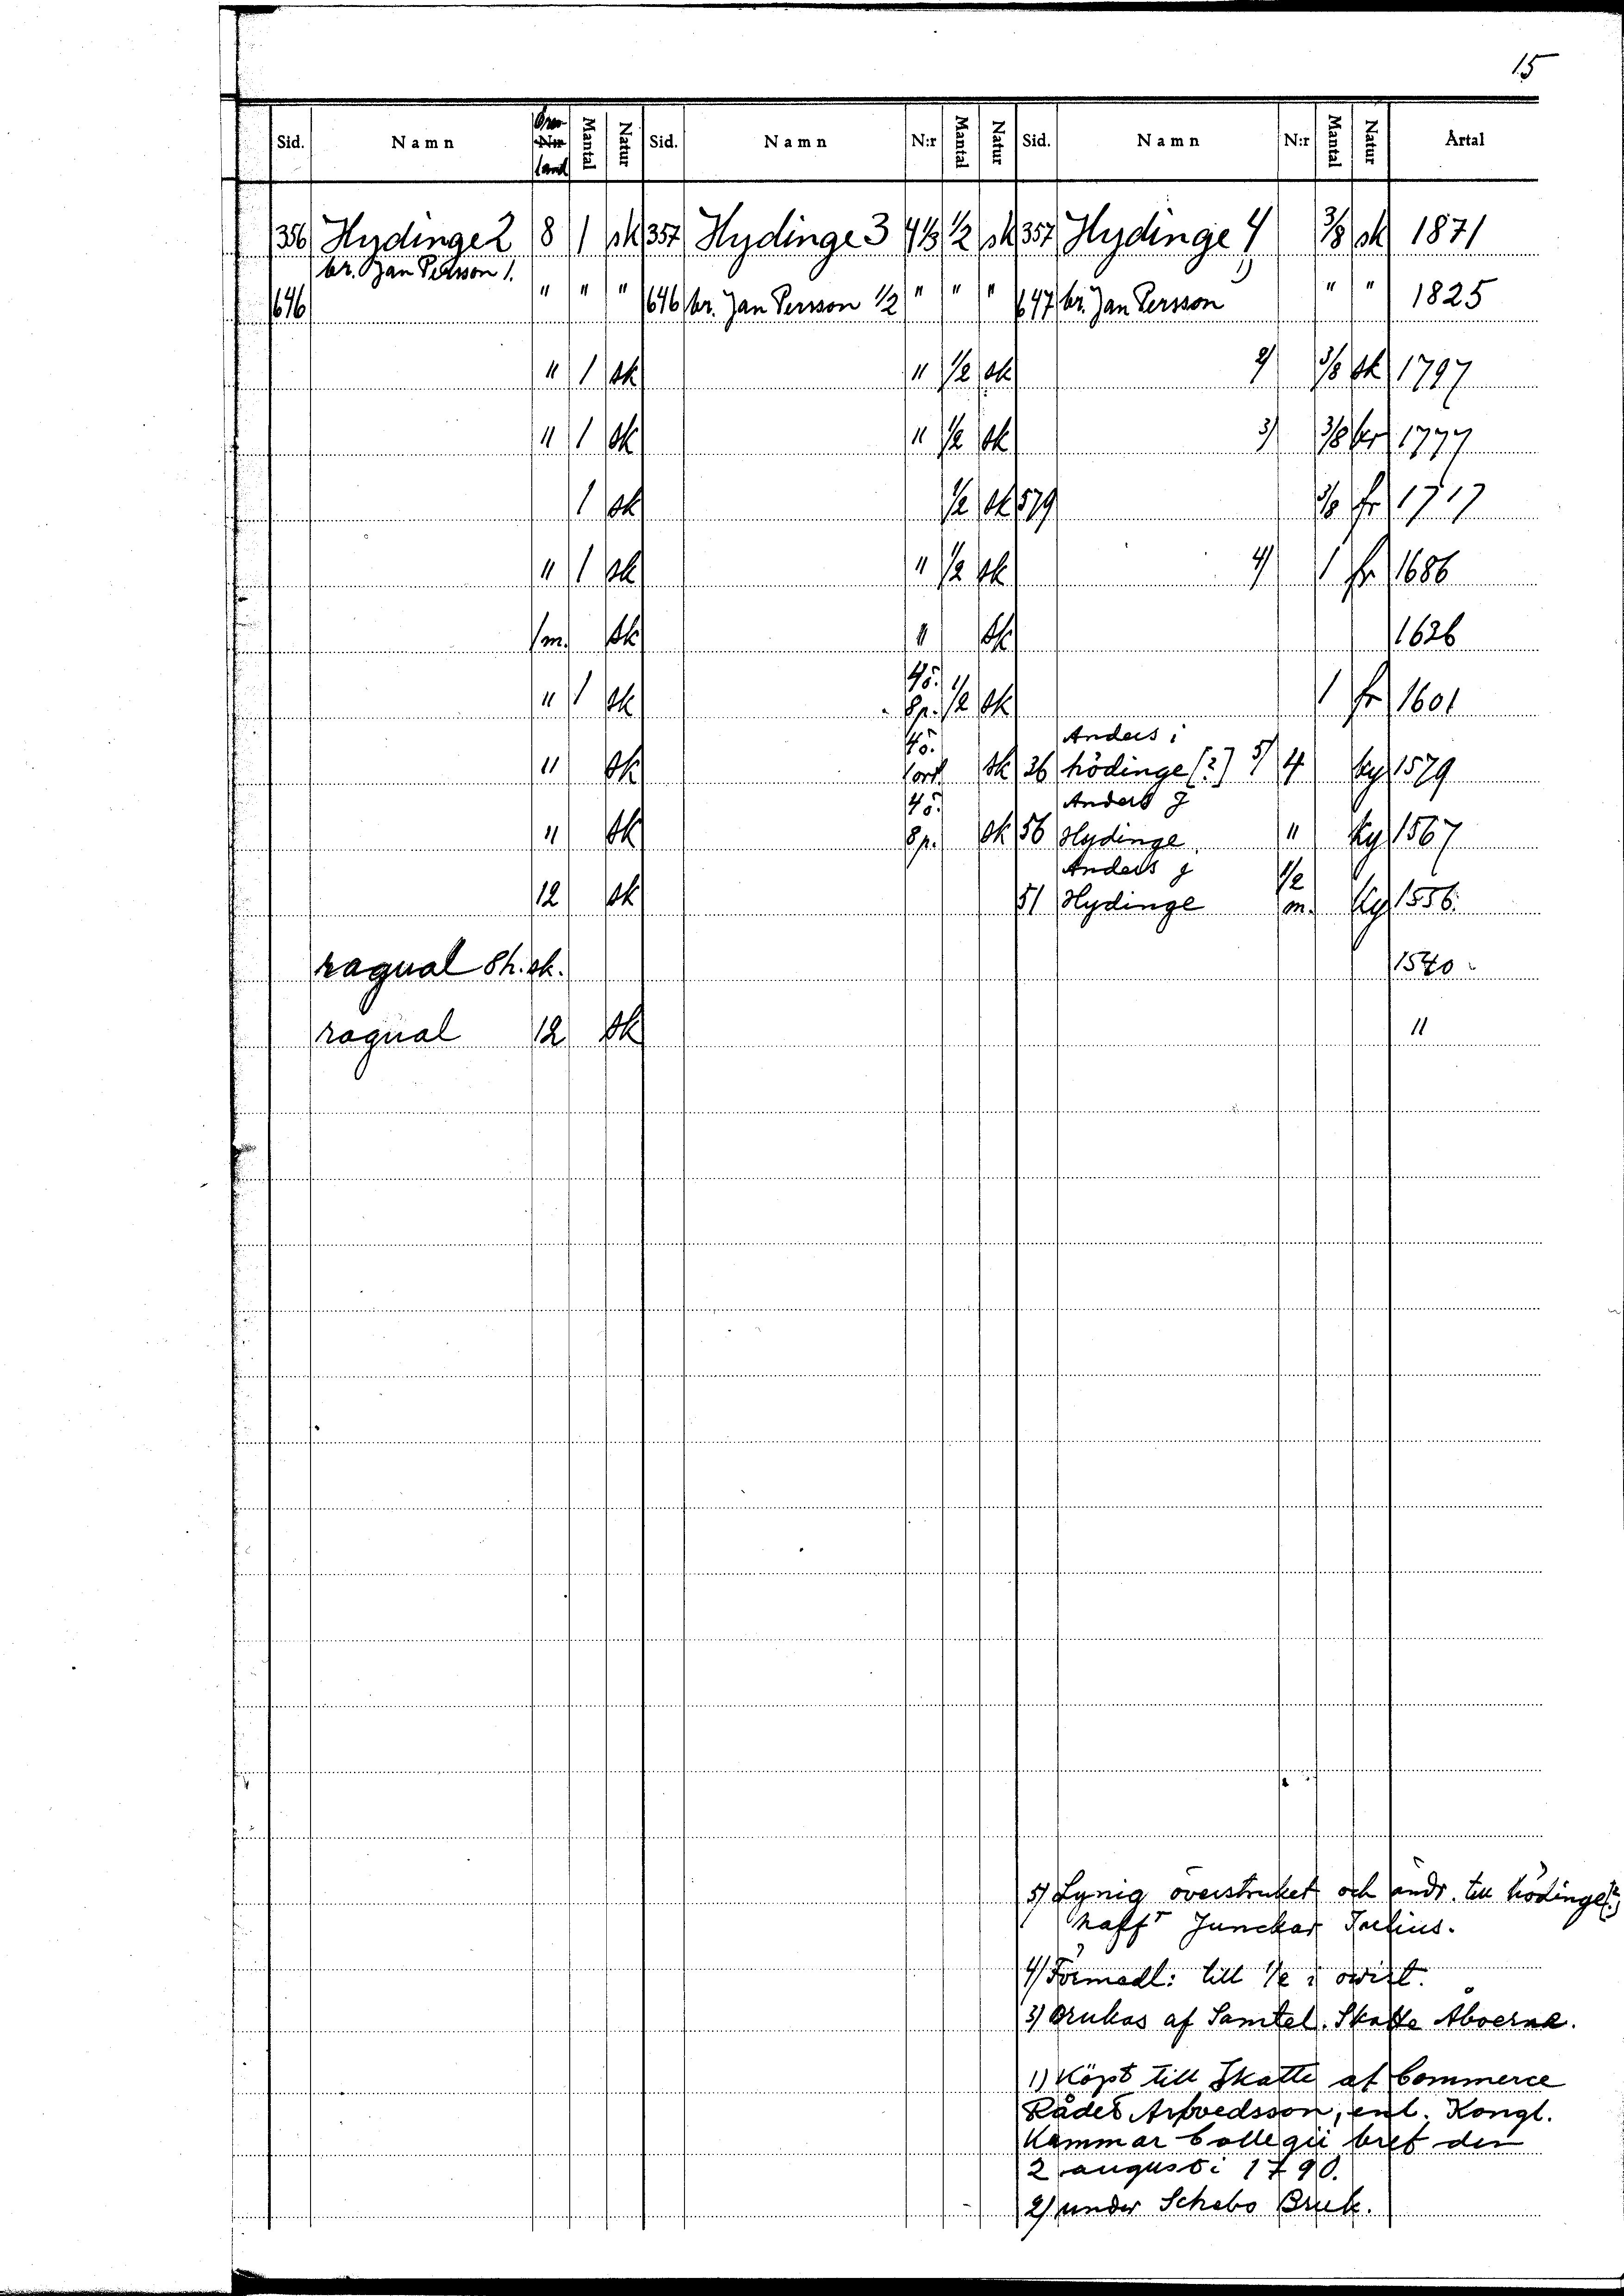 15
Sid. Namn Öres N:r land Mantal Natur Sid. Namn N:r Mantal Natur Sid. Namn N:r Mantal Natur Årtal
356 Hydinge 2 8 1 sk 357 Hydinge 3 4 1/3 1/2 sk 357 Hydinge 4 3/8 sk 1871
br. Jan Persson 1. 1)
646 " " " 646 br. Jan Persson 1/2 " " " 647 br. Jan Persson " " 1825
" 1 sk " 1/2 sk 2) 3/8 sk 1797
" 1 sk " 1/2 sk 3) 3/8 kr 1777
1 sk 1/2 sk 579 3/8 fr 1717
" 1 sk " 1/2 sk 4) 1 fr 1686
1m. sk " sk 1626
4ö.
" 1 sk 8p. 1/2 sk 1 fr 1601
4ö. Anders i
" sk 1ort. sk 36 hödinge [?] 5) 4 ky 1579
4ö. Anders J
" sk 8p. sk 56 Hydinge " ky 1567
Anders J 1/2
12 sk 51 Hydinge m. ky 1556
ragual 8h. sk. 1540
ragual 12 sk "
5) Lynig överstruket och ändr. till hödinge [?]
haffr Junckar Julius.
4) Förmedl: till 1/2 i owist.
3) Brukas af Samtel. Skatte Åboerne.
1) Köpt till Skatte af Commerce
Rådet Arfvedsson, enl. Kongl.
Kammar Collegii bref den
2 augusti 1790.
2) under Schebo Bruk.